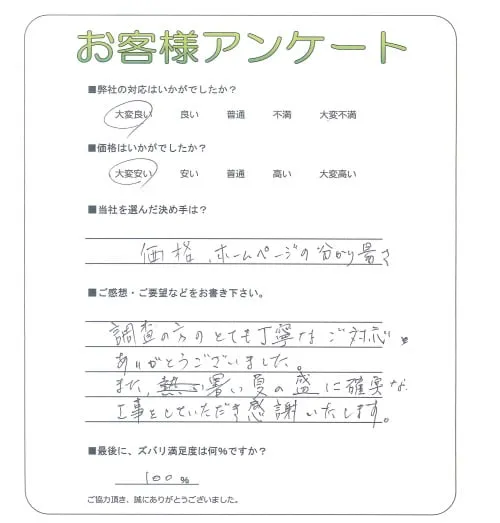 お客様アンケート
■弊社の対応はいかがでしたか？
大変良い 良い 普通 不満 大変不満
■価格はいかがでしたか？
大変安い 安い 普通 高い 大変高い
■当社を選んだ決め手は？
価格、ホームページの分かり易さ
■ご感想・ご要望などをお書き下さい。
調査の方のとても丁寧なご対応、
ありがとうございました。
また、暑い夏の盛に確実な
工事をしていただき感謝いたします。
■最後に、ズバリ満足度は何%ですか？
100%
ご協力頂き、誠にありがとうございました。